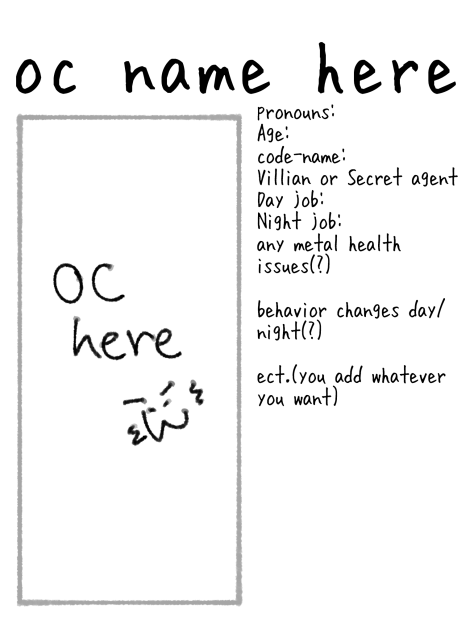 oc name here
Pronouns:
Age:
code-name:
Villian or Secret agent
Day job:
Night job:
any metal health
issues(?)
behavior changes day/
night(?)
ect.(you add whatever
you want)
OC
here